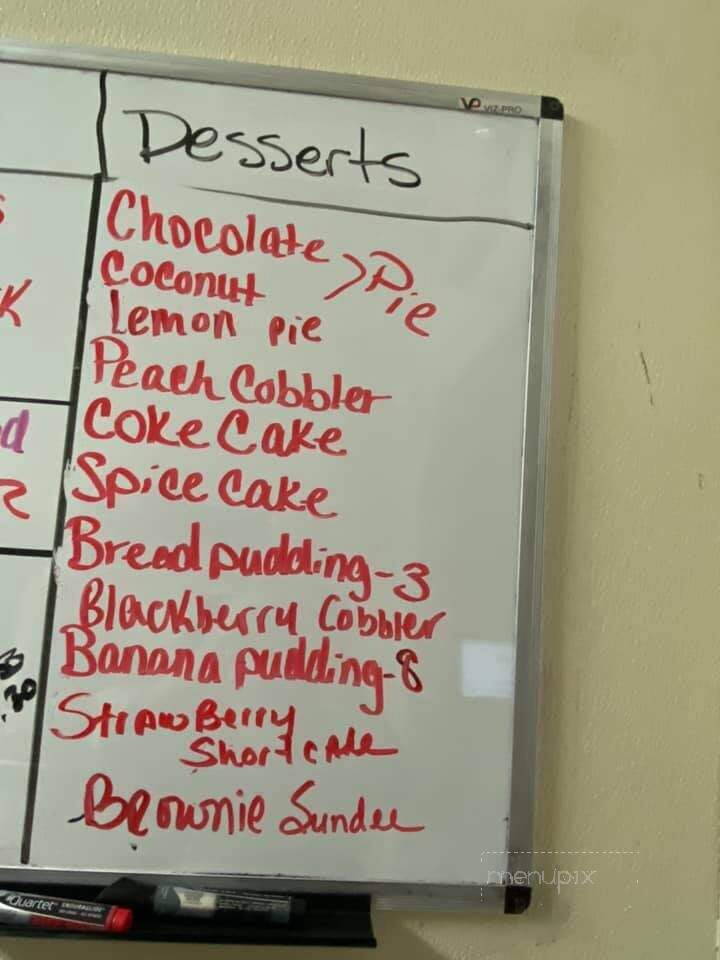 VP VIZ-PRO
Desserts
Chocolate
Coconut > Pie
Lemon pie
Peach Cobbler
Coke Cake
Spice Cake
Bread pudding-3
Blackberry Cobbler
Banana pudding-8
StrawBerry
Shortcake
Brownie Sundee
K
d
.30
Quartet ENDURAGLIDE
menupix